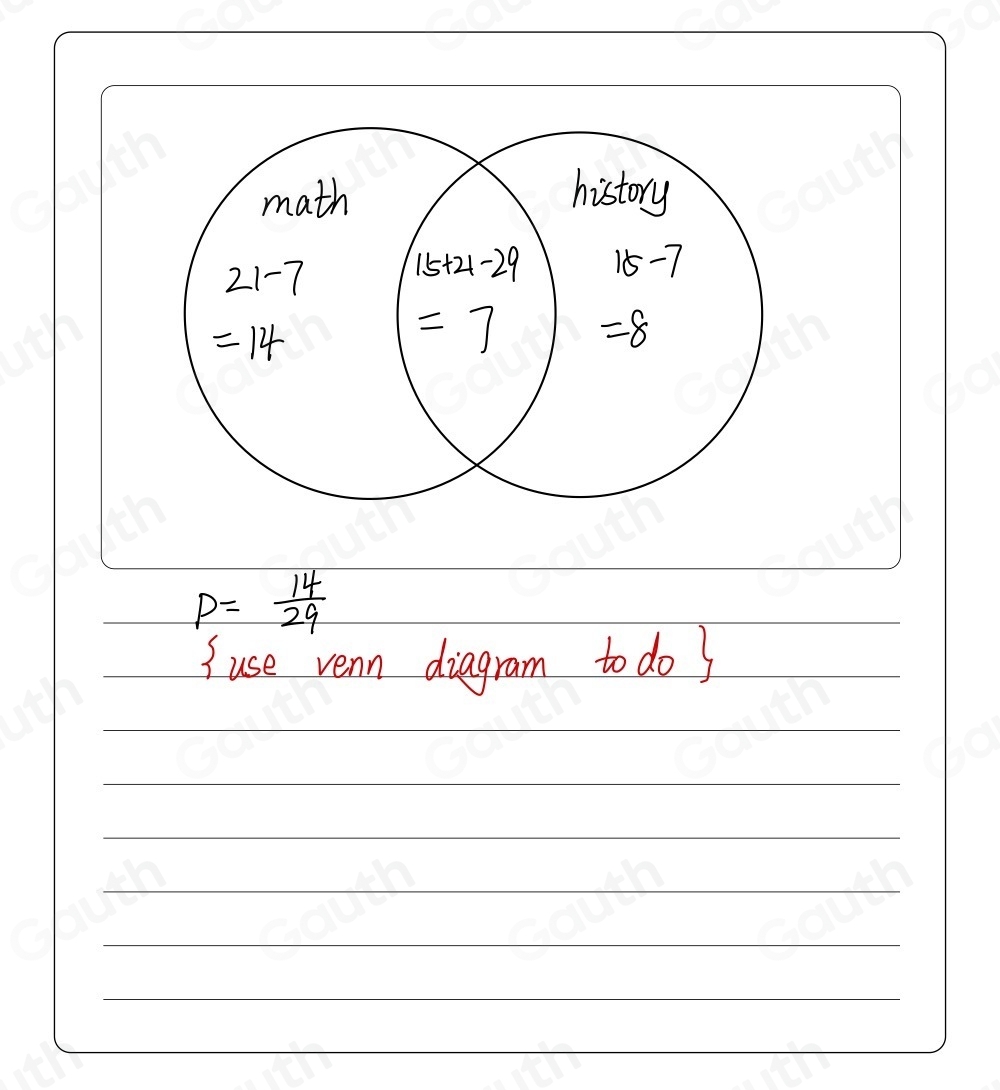 math
history
21-7
=14
15+21-29
= 7
15-7
=8
P= 14/29
{use venn diagram to do}
Gauth